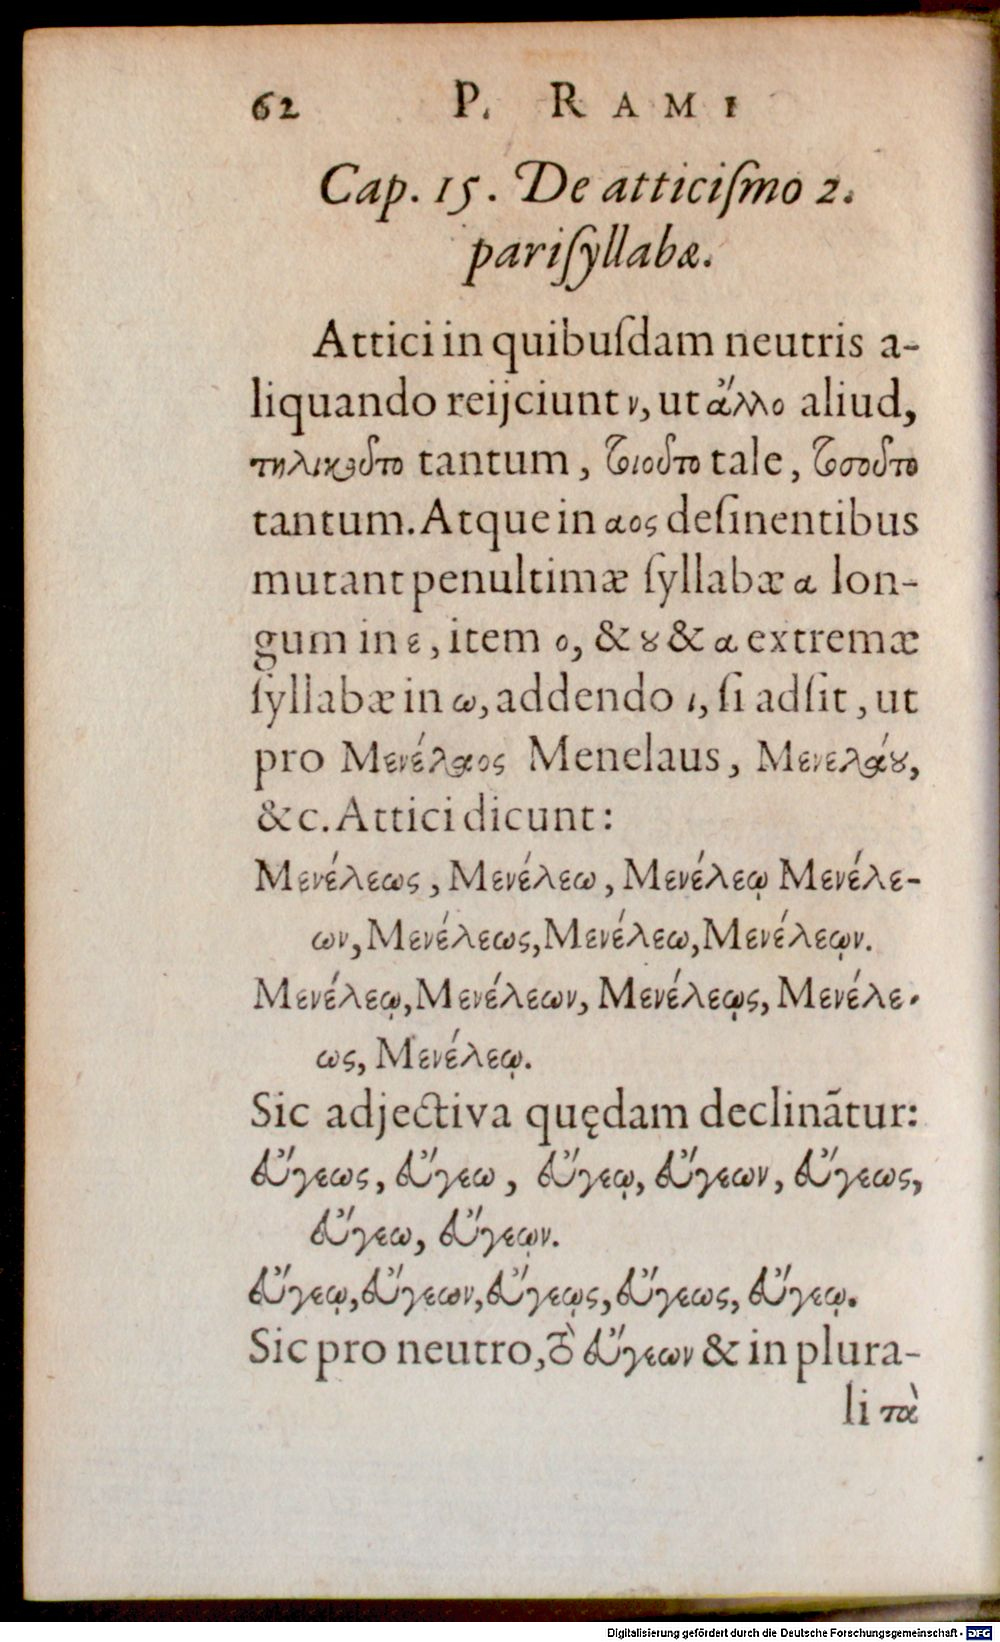 62 P. RAMI
Cap. 15. De atticiſmo 2.
pariſyllabæ.
Attici in quibuſdam neutris a-
liquando reijciunt ν, ut ἄλλο aliud,
τηλικȣ͂το tantum, τοιοῦτο tale, τοσοῦτο
tantum. Atque in αος deſinentibus
mutant penultimæ ſyllabæ α lon-
gum in ε, item ο, & ȣ & α extremæ
ſyllabæ in ω, addendo ι, ſi adſit, ut
pro Μενέλαος Menelaus, Μενελάȣ,
&c. Attici dicunt:
Μενέλεως, Μενέλεω, Μενέλεῳ Μενέλε-
ων, Μενέλεως, Μενέλεω, Μενέλεῳν.
Μενέλεῳ, Μενέλεων, Μενέλεῳς, Μενέλε-
ως, Μενέλεῳ.
Sic adjectiva quędam declinãtur:
εὔγεως, εὔγεω, εὔγεῳ, εὔγεων, εὔγεως,
εὔγεω, εὔγεῳν.
εὔγεῳ, εὔγεων, εὔγεῳς, εὔγεως, εὔγεῳ.
Sic pro neutro, τὸ εὔγεων & in plura-
li τὰ
Digitalisierung gefördert durch die Deutsche Forschungsgemeinschaft - DFG